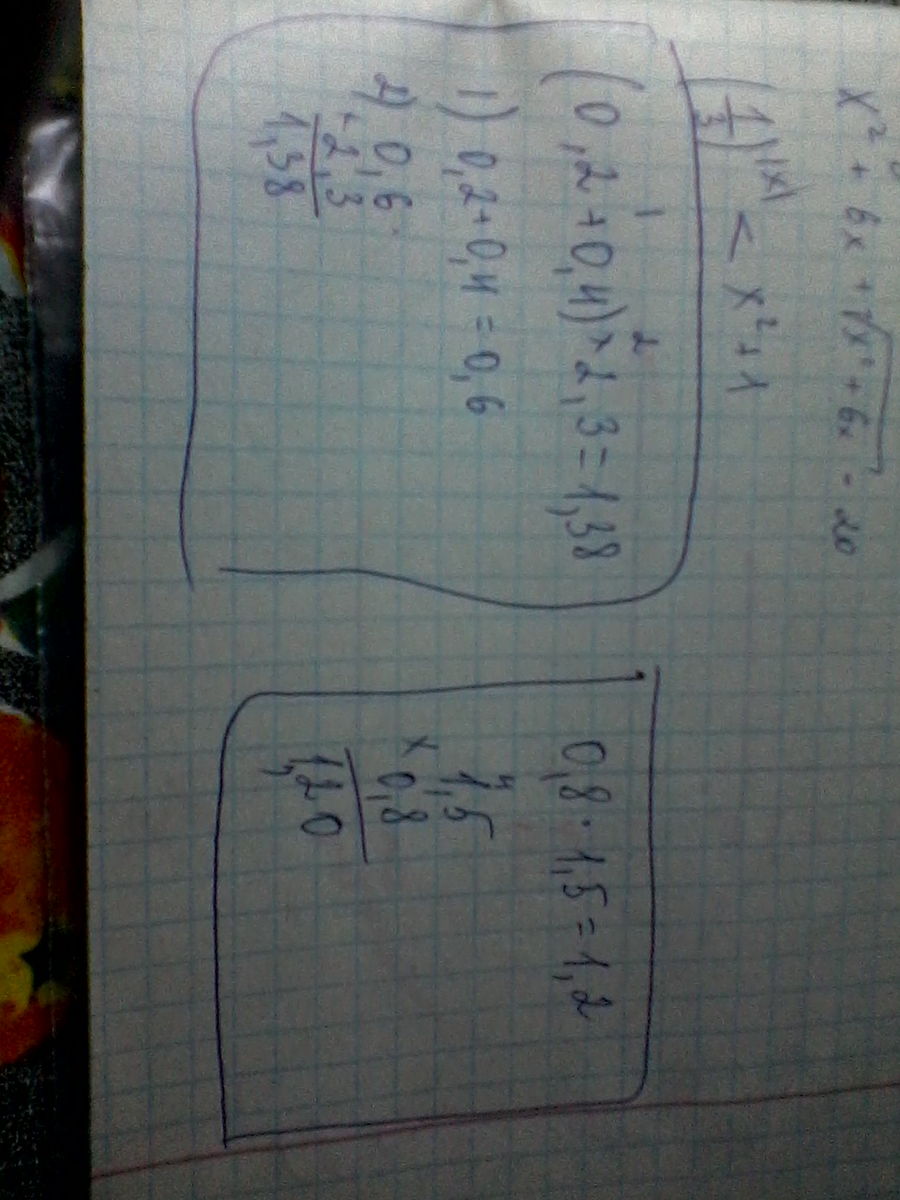 x² + 6x + √x² + 6x - 20
(1/3)^|x| < x² + 1
1 2
(0,2+0,4)×2,3=1,38
1) 0,2+0,4=0,6
2) 0,6
× 2,3
1,38
0,8·1,5=1,2
4
1,5
× 0,8
1,20